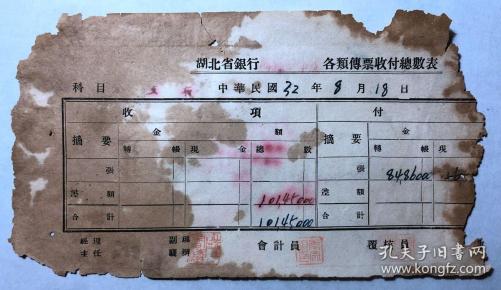 湖北省銀行 各類傳票收付總數表
科目 中華民國32年8月18日
收項 付
摘要 金額 摘要 金
轉帳 現金 總數 轉帳 現
張 張 848600
淺額 1014500 淺額
合計 1014500 合計
經理 副理 會計員 覆核員
主任 襄理
孔夫子旧书网
www.kongfz.com